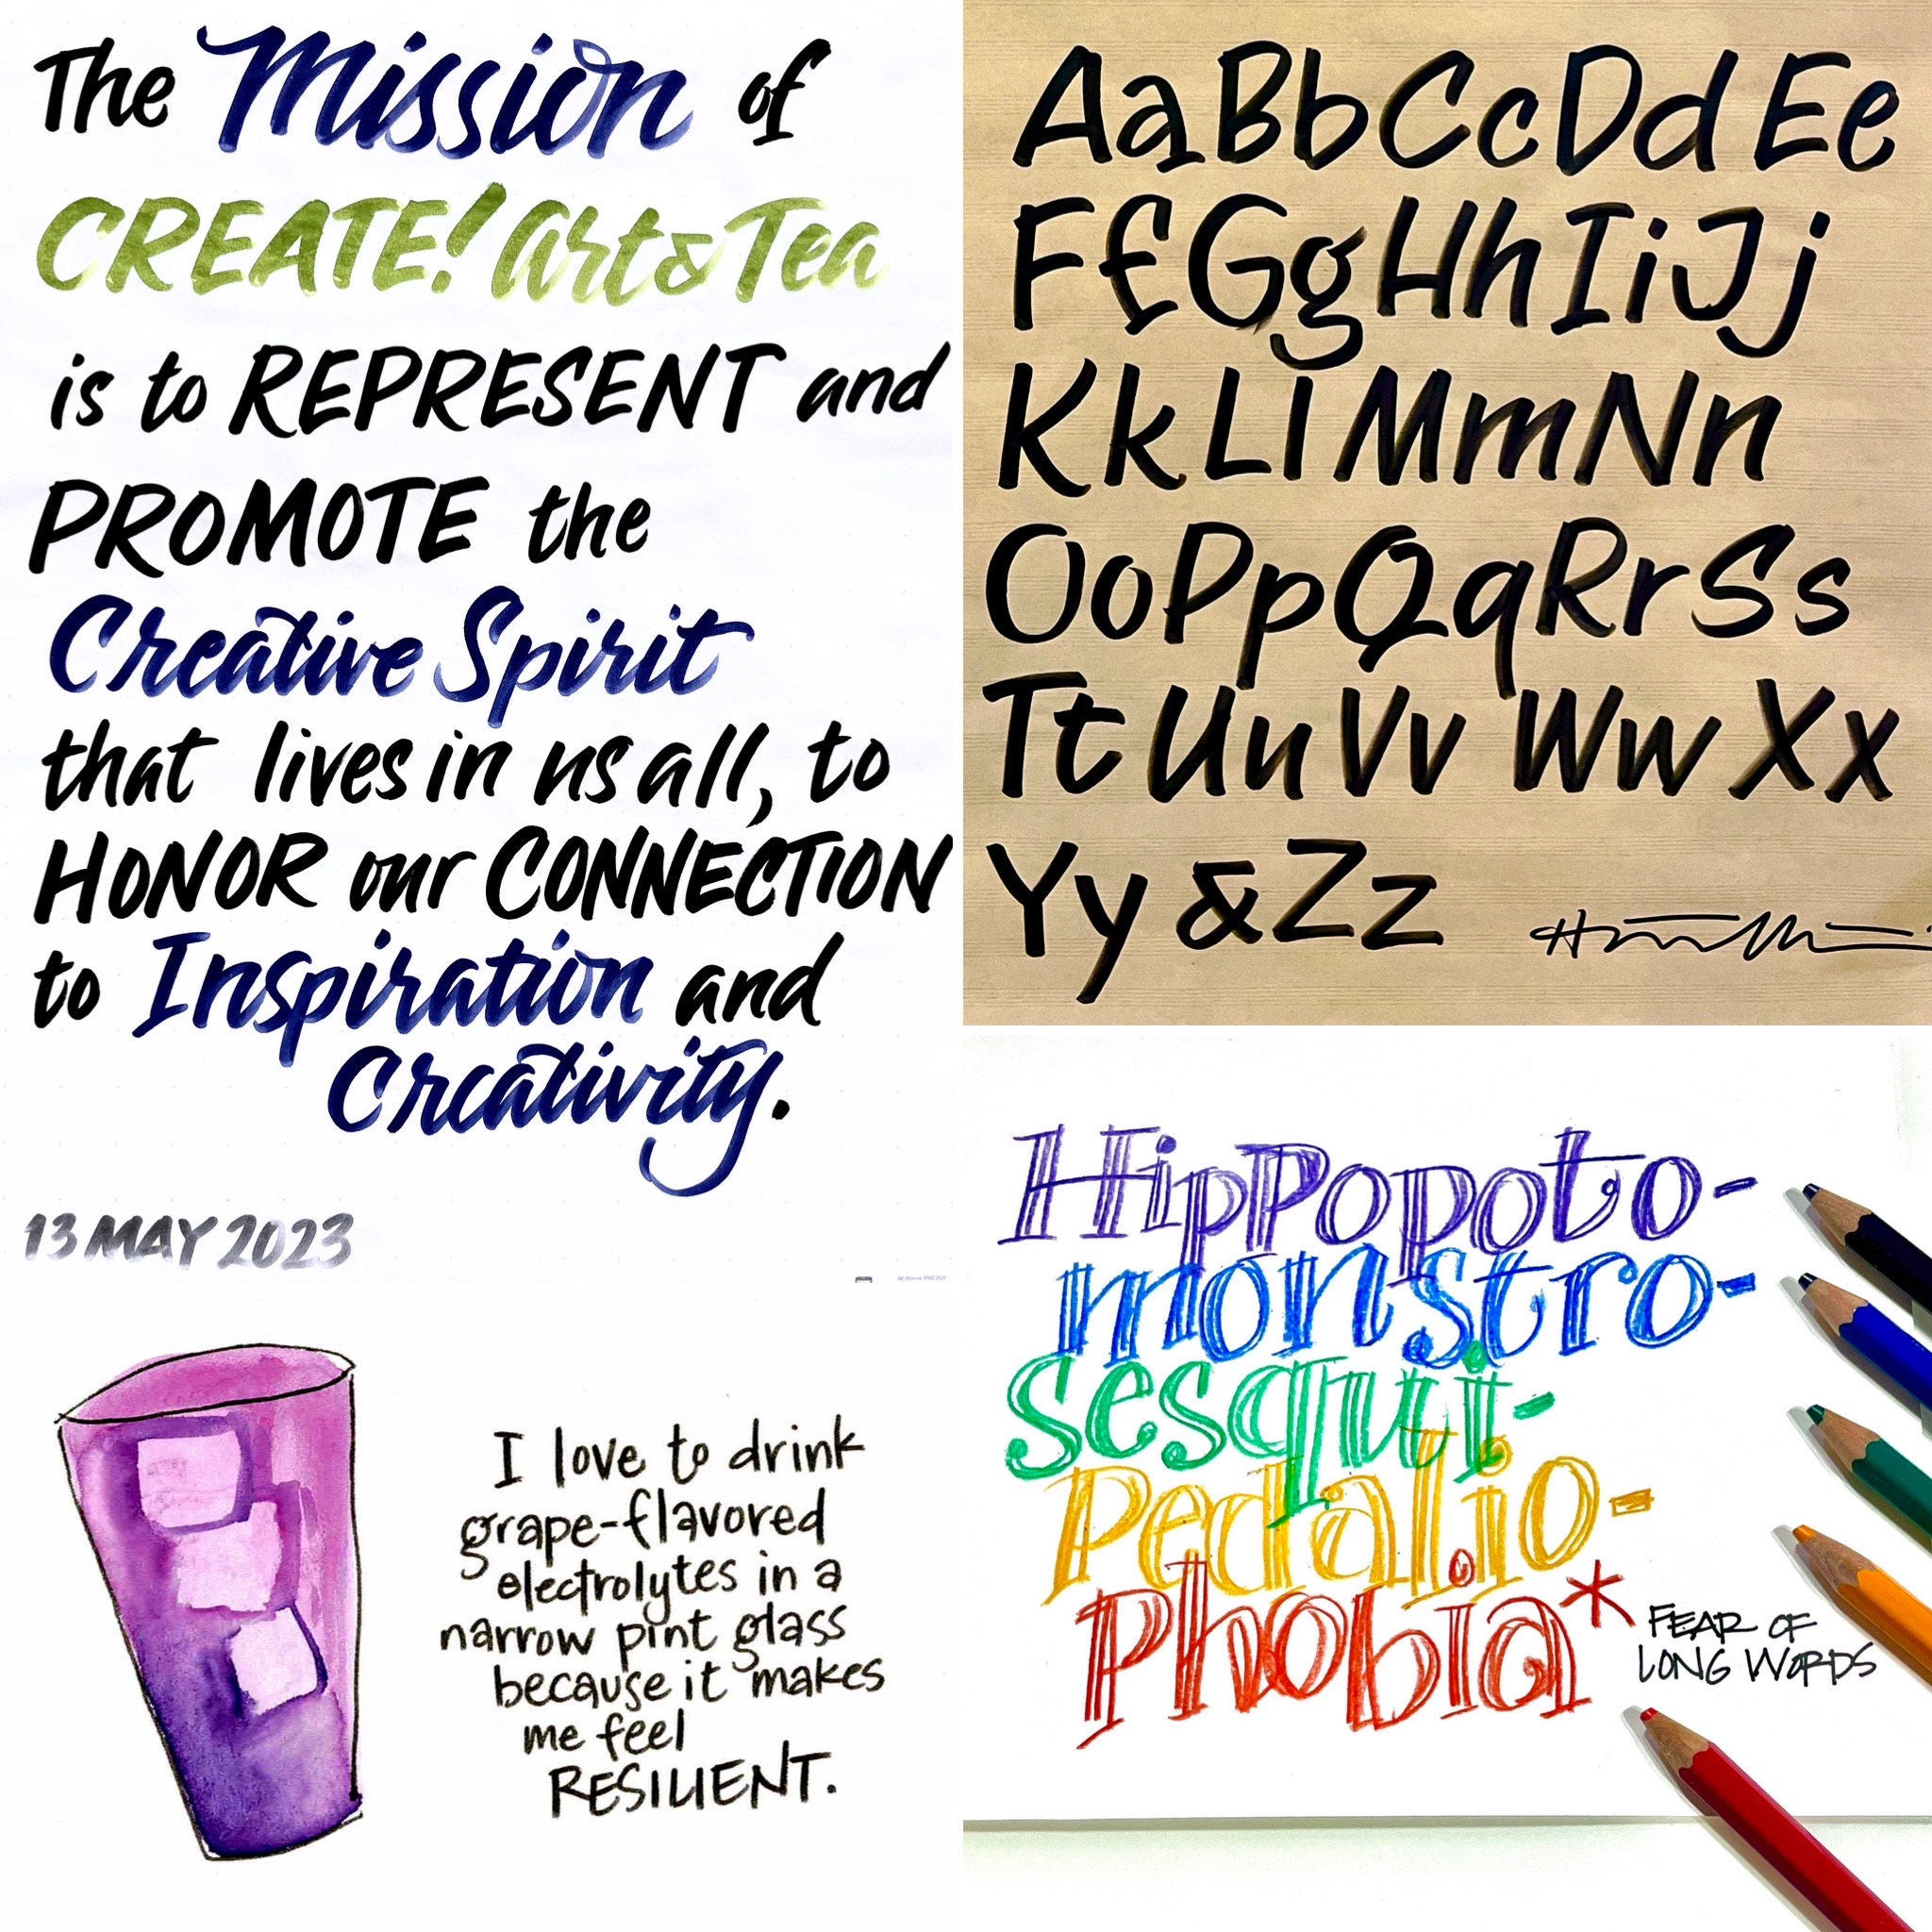 The Mission of
CREATE! Art & Tea
is to REPRESENT and
PROMOTE the
Creative Spirit
that lives in us all, to
HONOR our CONNECTION
to Inspiration and
Creativity.
13 MAY 2023
AaBbCcDdEe
FfGgHhIiJj
KkLlMmNn
OoPpQqRrSs
TtUuVvWwXx
Yy&Zz
I love to drink
grape-flavored
electrolytes in a
narrow pint glass
because it makes
me feel
RESILIENT.
HipPopoto-
monstro-
sesqui-
Pedalio-
Phobia*
FEAR OF
LONG WORDS